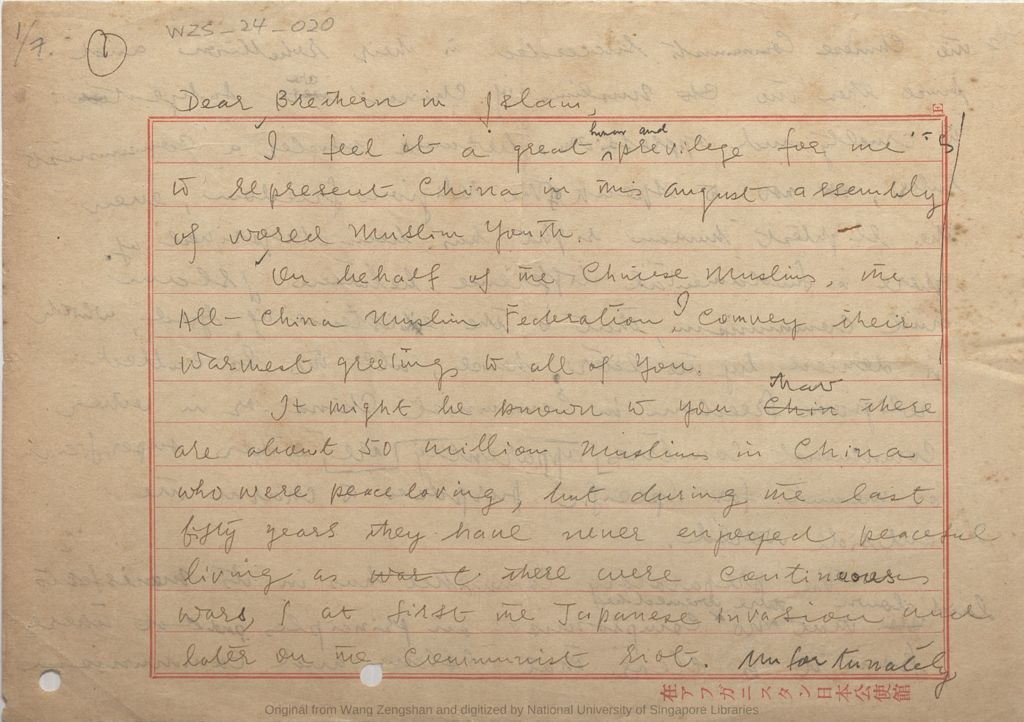 1/7.
1
WZS_24_020
Dear Brethern in Islam,
I feel it a great honour and previlege for me
to represent China in this august assembly
of wored Muslim Youth.
On behalf of the Chinese Muslims, the
All-China Muslim Federation, I convey their
warmest greetings to all of You.
It might be known to you Chin that there
are about 50 million Muslims in China
who were peace loving, but during the last
fifty years they have never enjoyed peaceful
living as there were continuous
wars, at first the Japanese invasion and
later on the Communist Plot. Unfortunately
在アフガニスタン日本公使館
Original from Wang Zengshan and digitized by National University of Singapore Libraries